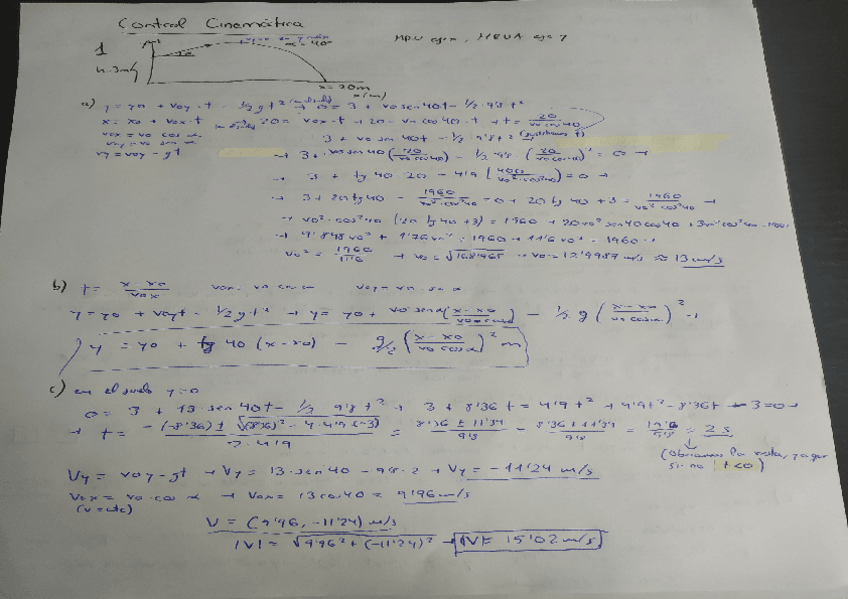 Control Cinemática
MRU eje x, MRUA eje y
1
x=20m
a) y = y0 + voy·t - 1/2 g t² → 0 = 3 + vo sen40t - 1/2 9'8t²
x = x0 + vox·t → 20 = vox·t → 20 = vo cos40·t → t = 20/(vo cos40)
vox = vo cos α
voy = vo sen α
3 + vo sen 40t - 1/2 9'8t² (sustituimos t)
vy = voy - gt
→ 3 + vo sen 40 (20/(vo cos40)) - 1/2 9'8 (20/(vo cos40))² = 0 →
→ 3 + tg 40·20 - 4'9 (400/(vo²·cos²40)) = 0 →
→ 3 + 20 tg 40 - 1960/(vo²·cos²40) = 0 → 20 tg 40 + 3 = 1960/(vo²·cos²40) →
→ vo²·cos²40 (20 tg 40 + 3) = 1960 → 20vo² sen40cos40 + 3vo²cos²40 = 1960
→ 9'848 vo² + 1'76 vo² = 1960 → 11'6 vo² = 1960 →
vo² = 1960/11'6 → vo = √168'965 → vo = 12'9987 m/s ≈ 13 m/s
b) t = (x-x0)/vox vox = vo cos α voy = vo·sen α
y = y0 + voyt - 1/2 g·t² → y = y0 + vo sen α ((x-x0)/(vo cos α)) - 1/2 g ((x-x0)/(vo cos α))² →
y = y0 + tg 40 (x-x0) - g/2 ((x-x0)/(vo cos α))² m
c) en el suelo y=0
0 = 3 + 13·sen 40t - 1/2 9'8 t² → 3 + 8'36 t = 4'9 t² → 4'9t² - 8'36t - 3 = 0 →
→ t = (-(-8'36) ± √((8'36)² - 4·4'9·(-3)))/(2·4'9) = (8'36 ± 11'34)/9'8 = (8'36 + 11'34)/9'8 = 19'6/9'8 = 2 s
(Obviamos la resta, ya que
si no t<0)
Vy = voy - gt → Vy = 13·sen 40 - 9'8·2 → Vy = -11'24 m/s
Vox = vo·cos α → Vox = 13cos40 = 9'96 m/s
(v=cte)
V = (9'96, -11'24) m/s
|V| = √(9'96² + (-11'24)²) → |V| = 15'02 m/s